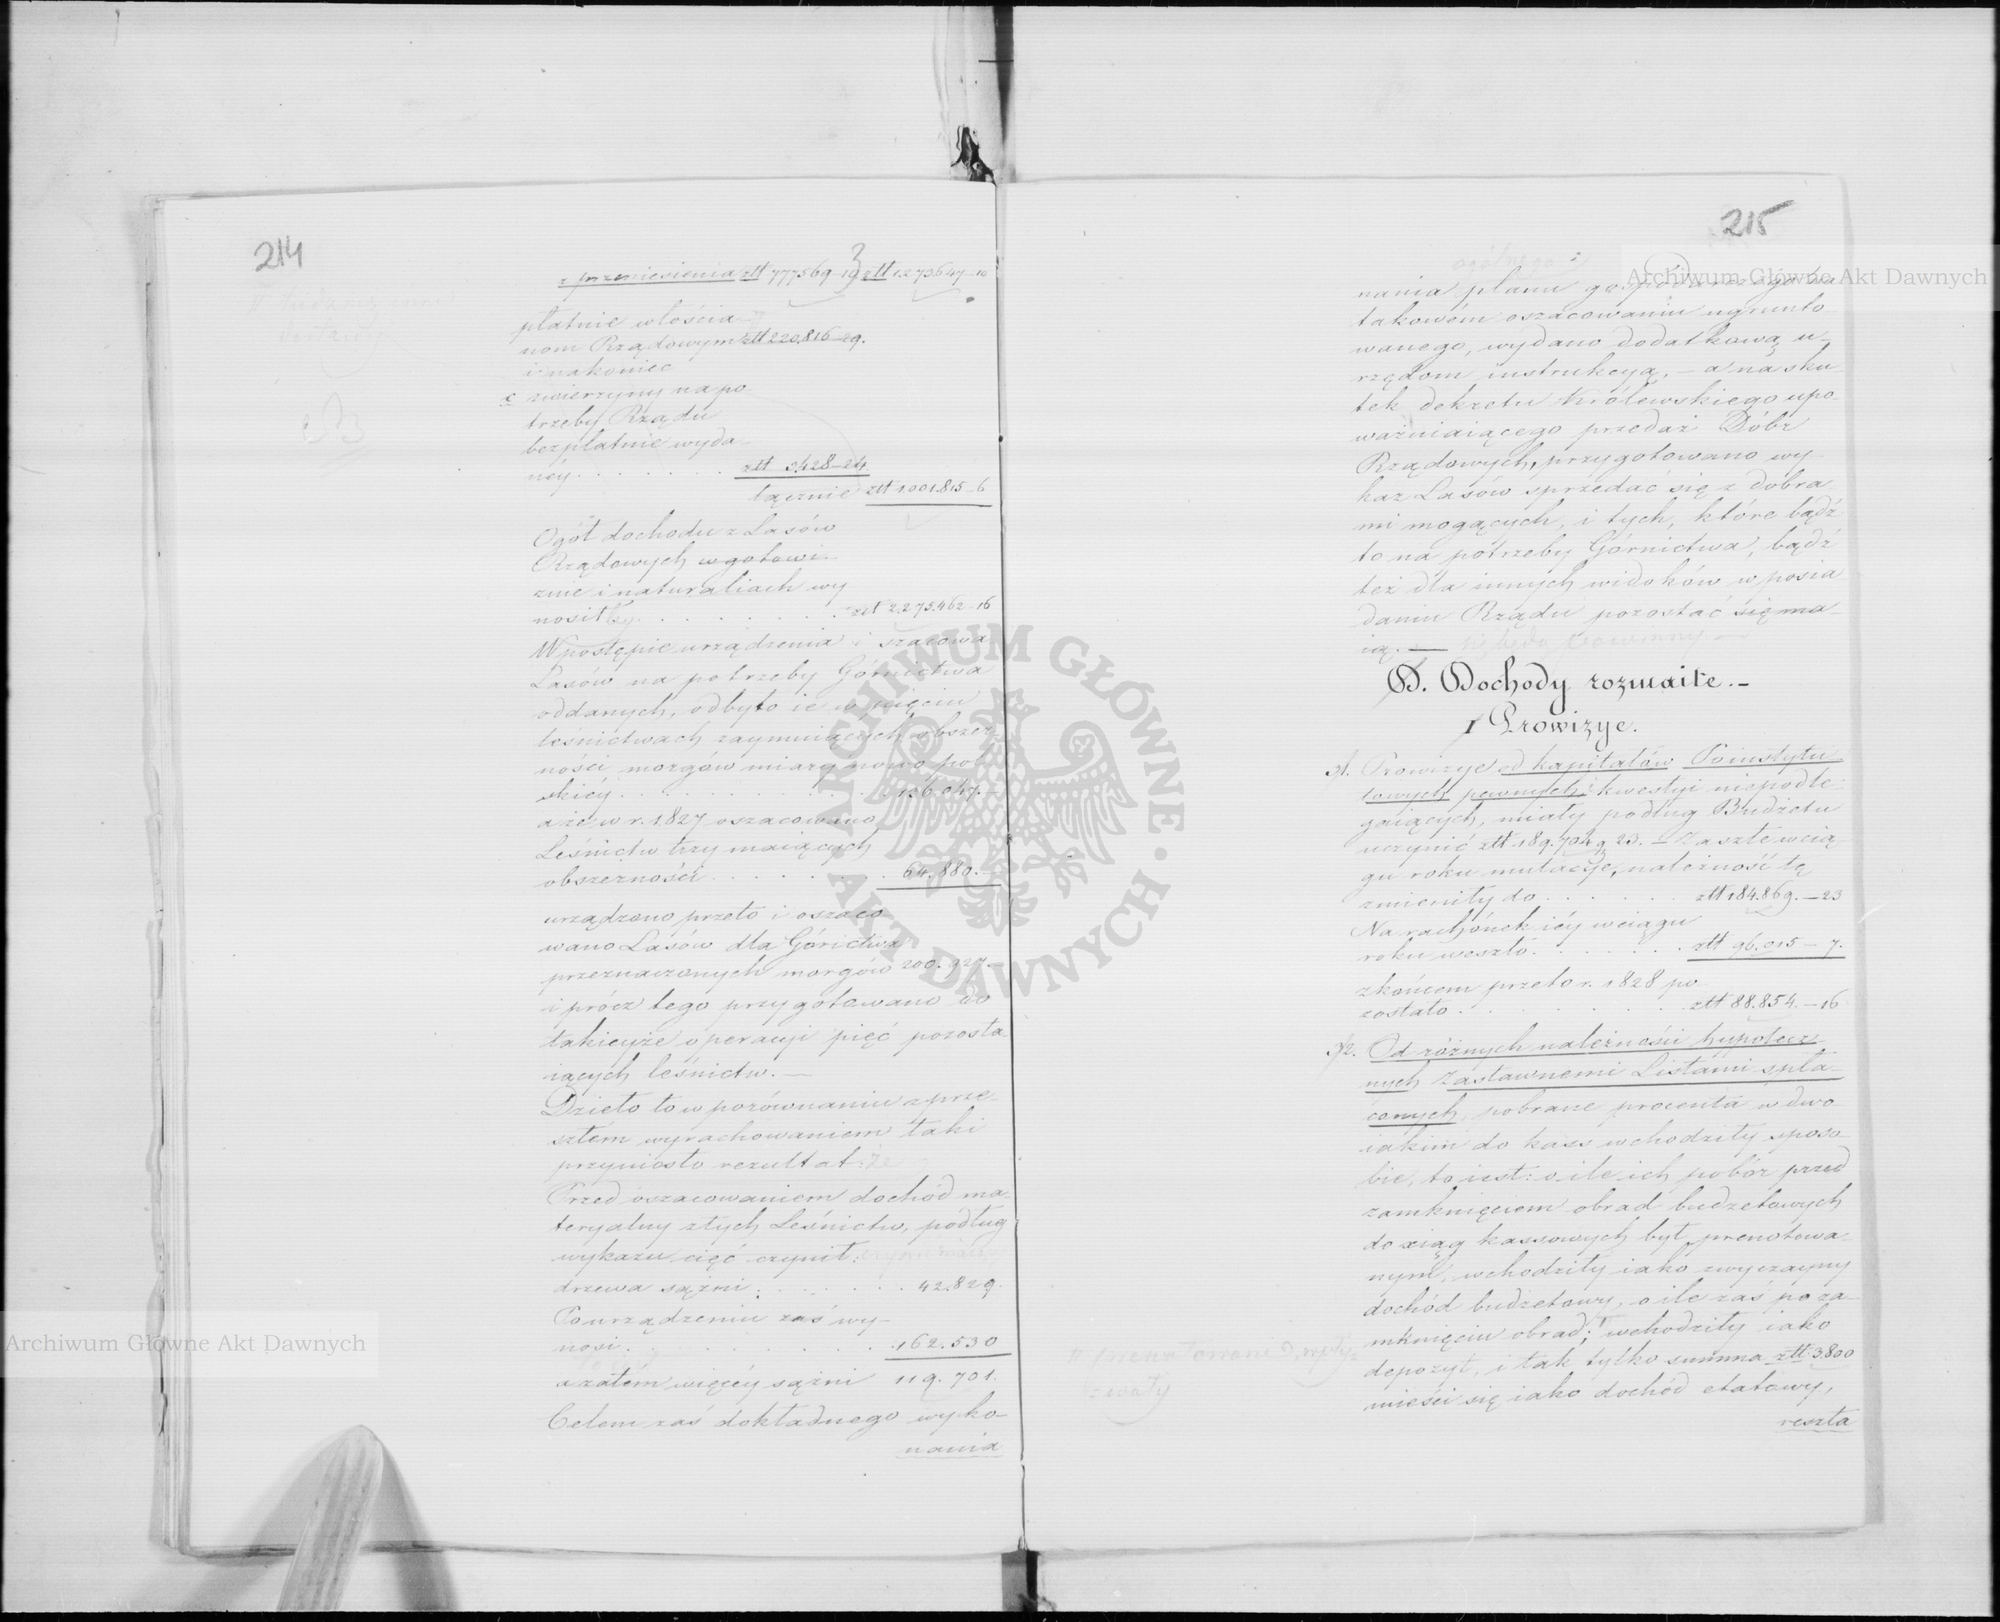 214
z przeniesienia ztt 777569-13 ztt 1.273647-10
płatnie włościa-
nom Rządowym ztt 220.816-29.
i nakoniec
c zwierzyny na po
trzeby Rządu
bezpłatnie wyda-
néy . . . . . . . ztt 3.428-24
łącznie ztt 1.001.815-6
Ogół dochodu z Lasów
Rządowych w gotowi-
znie i naturaliach wy
nosił . . . . . . . ztt 2.275.462-16
W postępie urządzenia i szacowa
Lasów na potrzeby Górnictwa
oddanych, odbyto ie w pięciu
leśnictwach zaymuiących obszer-
ności morgów miary nowo pol
skiéy . . . . . . . 136.047.-
a że w r. 1827 oszacowano
Leśnictw trzy maiących
obszerności . . . . . . . 64.880.-
urządzono przeto i oszaco
wano Lasów dla Górnictwa
przeznaczonych morgów 200.927.-
i prócz tego przygotowano do
takieyże operacyi pięć pozosta
iących leśnictw.-
Dzieło to w porównaniu z prze-
szłem wyrachowaniem taki
przyniosło rezultat: że
Przed oszacowaniem dochód ma
teryalny z tych Leśnictw, podług
wykazu cięć czynił:
drzewa sążni . . . . . . 42.829.
Po urządzeniu zaś wy-
nosi . . . . . . . 162.530
a zatem więcéy sążni 119.701.
Celem zaś dokładnego wyko-
nania
215
ogólnego
nania planu gospodarczego na
takowém oszacowaniu ugrunto
wanego, wydano dodatkową u-
rzędom instrukcyą, - a na sku
tek dekretu Królewskiego upo-
ważniaiącego przedaż Dóbr
Rządowych, przygotowano wy-
kaz Lasów sprzedać się z dobra-
mi mogących, i tych, które bądź
to na potrzeby Górnictwa, bądź
też dla innych widoków w posia
daniu Rządu pozostać się ma-
ią. -
D. Dochody rozmaite.-
1 Prowizye.
1. Prowizye od kapitałów Poinstytu
towych pewnych i kwestyi niepodle-
gaiących, miały podług Budżetu
uczynić ztt 189.704 g 23. - Zaszłe w cią
gu roku mutacye, należność tę
zmieniły do . . . . . . ztt 184.869.-23
Na rachónek iéy w ciągu
roku weszło . . . . . . ztt 96.015-7.
z końcem przeto r. 1828 po-
zostało . . . . . . . ztt 88.854.-16
2. Od różnych należności hypotecz-
nych Zastawnemi Listami spła-
conych, pobrane procenta w dwo
iakim do kass wchodziły sposo-
bie, to iest: o ile ich pobór przed
zamknięciem obrad budżetowych
do xiąg kassowych był prenotowa-
nym, wchodziły iako zwyczayny
dochód budżetowy, o ile zaś po za-
mknięciu obrad; wchodziły iako
depozyt, i tak tylko summa ztt 3.800
mieści się iako dochód etatowy,
reszta
Archiwum Główne Akt Dawnych
Archiwum Główne Akt Dawnych
ARCHIWUM GŁÓWNE · AKT DAWNYCH ·